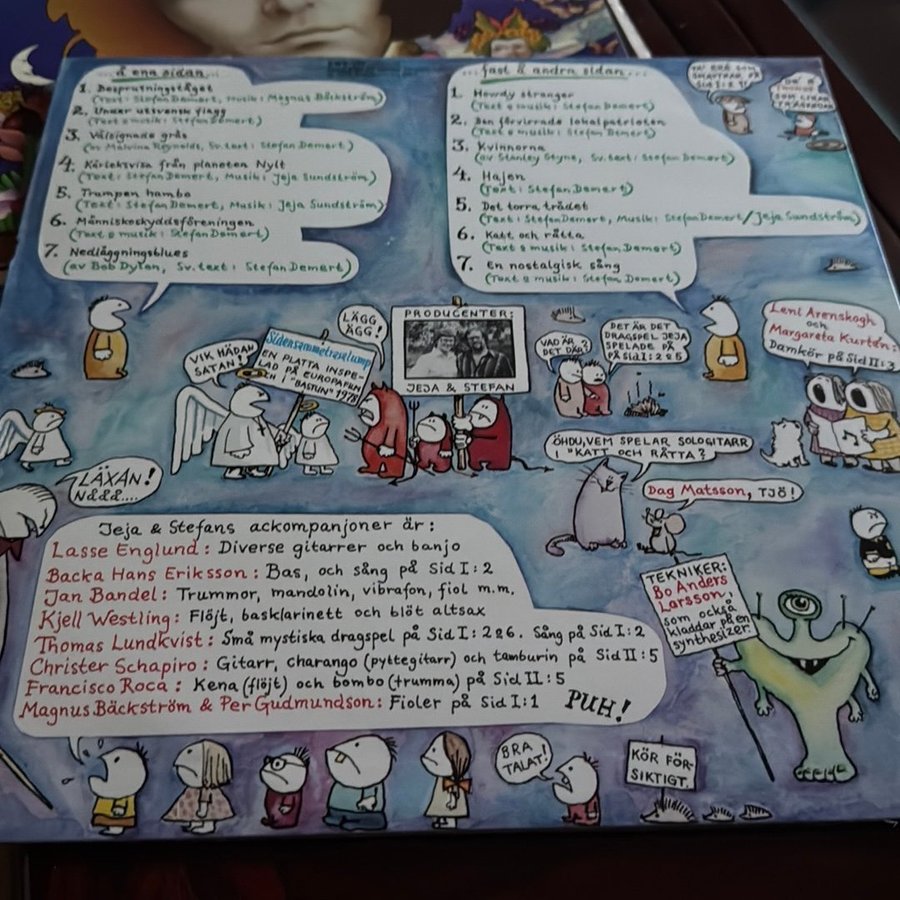 ...å ena sidan...
1. Besprutningståget
(Text: Stefan Demert, Musik: Magnus Bäckström)
2. Under utsvensk flagg
(Text & musik: Stefan Demert)
3. Välsignade gräs
(av Malvina Reynolds, Sv. text: Stefan Demert)
4. Kärleksvisa från planeten Nylt
(Text: Stefan Demert, Musik: Jeja Sundström)
5. Trumpen hambo
(Text: Stefan Demert, Musik: Jeja Sundström)
6. Människoskyddsföreningen
(Text & musik: Stefan Demert)
7. Nedläggningsblues
(av Bob Dylan, Sv. text: Stefan Demert)
...fast å andra sidan...
1. Howdy stranger
(Text & musik: Stefan Demert)
2. Den förvirrade lokalpatrioten
(Text & musik: Stefan Demert)
3. Kvinnorna
(av Stanley Styne, Sv. text: Stefan Demert)
4. Hajen
(Text: Stefan Demert)
5. Det torra trädet
(Text: Stefan Demert, Musik: Stefan Demert/Jeja Sundström)
6. Katt och råtta
(Text & musik: Stefan Demert)
7. En nostalgisk sång
(Text & musik: Stefan Demert)
SOM
SMATTRAR PÅ
SID I:2
SOM LIRAR
VIK HÄDAN
SATAN!
Sidensammetrevelump
EN PLATTA INSPE-
LAD PÅ EUROPAFILM
OCH I "BASTUN" 1978
LÄGG
ÄGG!
PRODUCENTER:
JEJA & STEFAN
VAD ÄR
DET DÄR?
DET ÄR DET
DRAGSPEL JEJA
SPELADE PÅ
PÅ Sid I: 2 & 5
Leni Arenskogh
och
Margareta Kurtén:
Damkör på Sid II:3
LÄXAN!
NÅÅÅ....
ÖHDU, VEM SPELAR SOLOGITARR
I "KATT OCH RÅTTA?
Dag Matsson, TJÖ!
Jeja & Stefans ackompanjoner är:
Lasse Englund: Diverse gitarrer och banjo
Backa Hans Eriksson: Bas, och sång på Sid I:2
Jan Bandel: Trummor, mandolin, vibrafon, fiol m.m.
Kjell Westling: Flöjt, basklarinett och blöt altsax
Thomas Lundkvist: Små mystiska dragspel på Sid I: 2&6. Sång på Sid I:2
Christer Schapiro: Gitarr, charango (pyttegitarr) och tamburin på Sid II:5
Francisco Roca: Kena (flöjt) och bombo (trumma) på Sid II:5
Magnus Bäckström & Per Gudmundson: Fioler på Sid I:1
PUH!
TEKNIKER:
Bo Anders
Larsson,
som också
kladdar på en
synthesizer.
BRA
TALAT!
KÖR FÖR-
SIKTIGT.